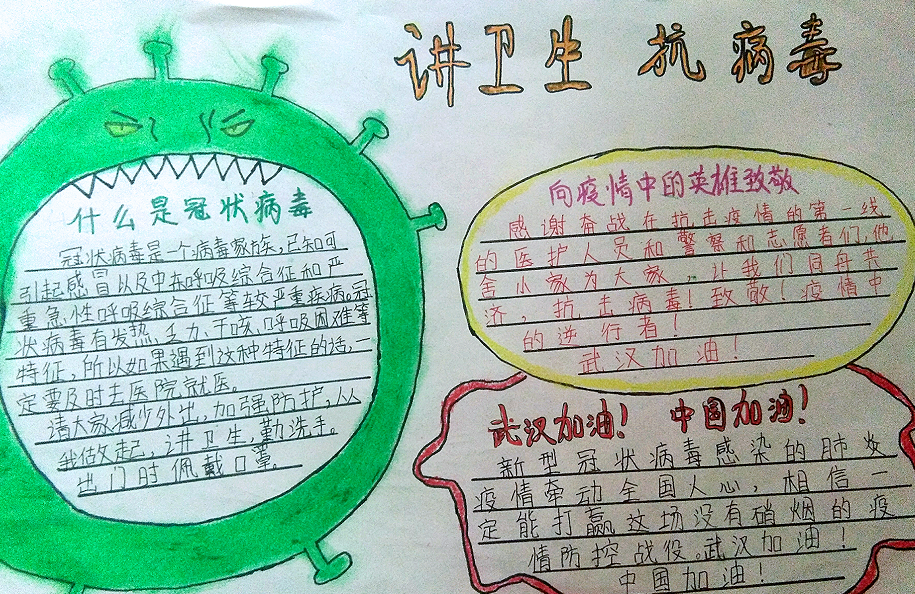 讲卫生 抗病毒
什么是冠状病毒
冠状病毒是一个病毒家族,已知可
引起感冒以及中东呼吸综合征和严
重急性呼吸综合征等较严重疾病。冠
状病毒有发热、乏力、干咳、呼吸困难等
特征,所以如果遇到这种特征的话,一
定要及时去医院就医。
请大家减少外出,加强防护,从
我做起,讲卫生,勤洗手。
出门时佩戴口罩。
向疫情中的英雄致敬
感谢奋战在抗击疫情的第一线
的医护人员和警察和志愿者们,他
舍小家为大家,让我们同舟共
济,抗击病毒!致敬!疫情中
的逆行者!
武汉加油!
武汉加油! 中国加油!
新型冠状病毒感染的肺炎
疫情牵动全国人心,相信一
定能打赢这场没有硝烟的疫
情防控战役。武汉加油!
中国加油!